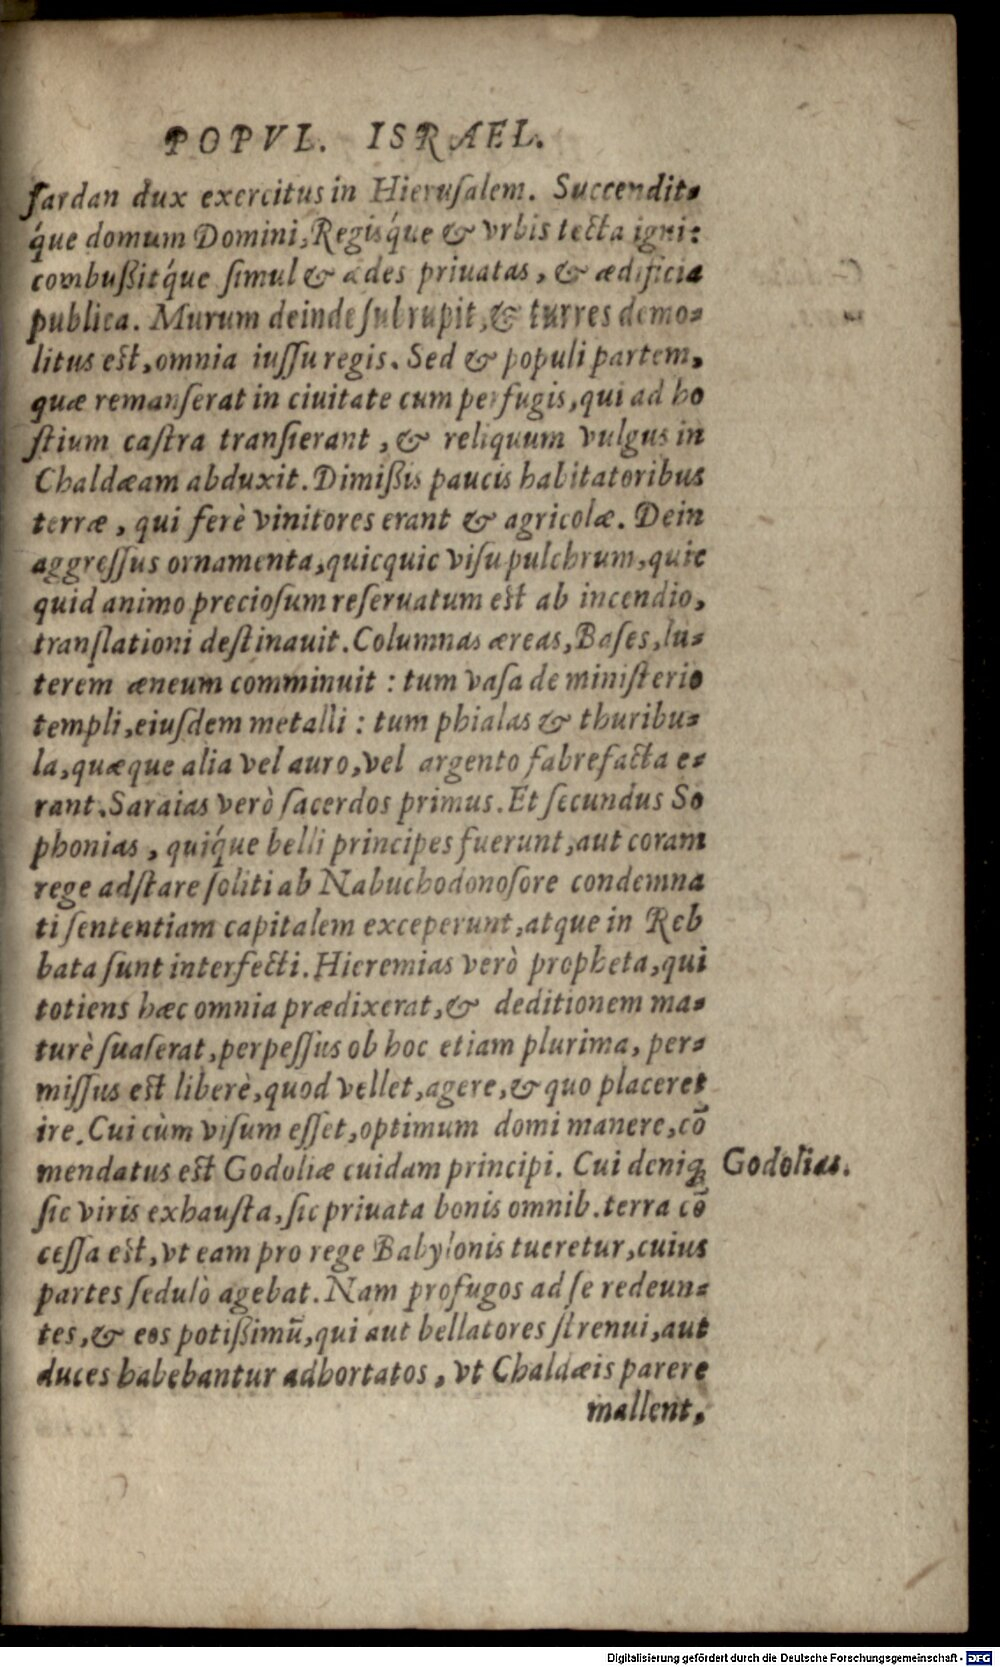 POPVL. ISRAEL.
ſardan dux exercitus in Hieruſalem. Succendit-
q́ue domum Domini, Regisq́ue & vrbis tecta igni:
combußitq́ue ſimul & ædes priuatas, & ædificia
publica. Murum deinde ſubrupit, & turres demo-
litus est, omnia iuſſu regis. Sed & populi partem,
quæ remanſerat in ciuitate cum perfugis, qui ad ho
ſtium caſtra tranſierant, & reliquum vulgus in
Chaldæam abduxit. Dimißis paucis habitatoribus
terræ, qui ferè vinitores erant & agricolæ. Dein
aggreſſus ornamenta, quicquic viſu pulchrum, quic
quid animo precioſum reſeruatum est ab incendio,
tranſlationi deſtinauit. Columnas æreas, Baſes, lu-
terem æneum comminuit: tum vaſa de miniſterio
templi, eiuſdem metalli: tum phialas & thuribu-
la, quæque alia vel auro, vel argento fabrefacta e-
rant. Saraias verò ſacerdos primus. Et ſecundus So
phonias, quiq́ue belli principes fuerunt, aut coram
rege adſtare ſoliti ab Nabuchodonoſore condemna
ti ſententiam capitalem exceperunt, atque in Reb
bata ſunt interfecti. Hieremias verò propheta, qui
totiens hæc omnia prædixerat, & deditionem ma-
turè ſuaſerat, perpeſſus ob hoc etiam plurima, per-
miſſus est liberè, quod vellet, agere, & quo placeret
ire. Cui cùm viſum eſſet, optimum domi manere, cō
mendatus est Godoliæ cuidam principi. Cui deniq́ꝫ
Godolias.
ſic viris exhauſta, ſic priuata bonis omnib. terra cō
ceſſa est, vt eam pro rege Babylonis tueretur, cuius
partes ſedulò agebat. Nam profugos ad ſe redeun-
tes, & eos potißimū, qui aut bellatores ſtrenui, aut
duces habebantur adhortatos, vt Chaldæis parere
mallent,
Digitalisierung gefördert durch die Deutsche Forschungsgemeinschaft - DFG